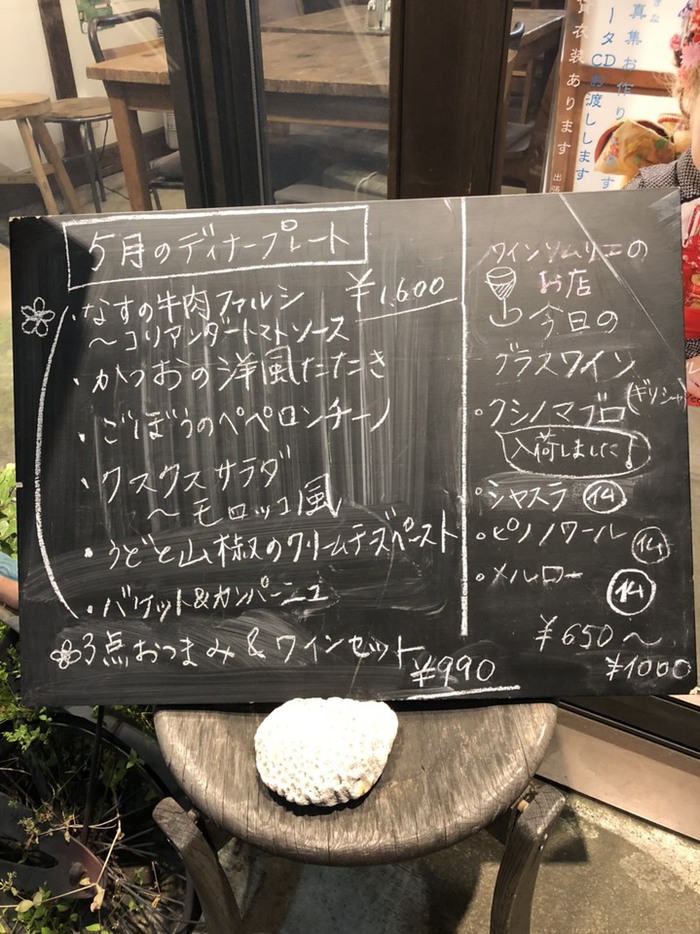 5月のディナープレート
¥1,600
・なすの牛肉ファルシ
〜コリアンダートマトソース
・かつおの洋風たたき
・ごぼうのペペロンチーノ
・クスクスサラダ
〜モロッコ風
・うどと山椒のクリームチーズペースト
・バゲット&カンパーニュ
3点おつまみ & ワインセット
¥990
ワインソムリエの
お店
今日の
グラスワイン
・クシノマブロ(ギリシャ)
入荷しました!
・シャスラ 仏
・ピノノワール 仏
・メルロー 仏
¥650〜
¥1000
真集お作り
ータCDお渡しします
衣装あります